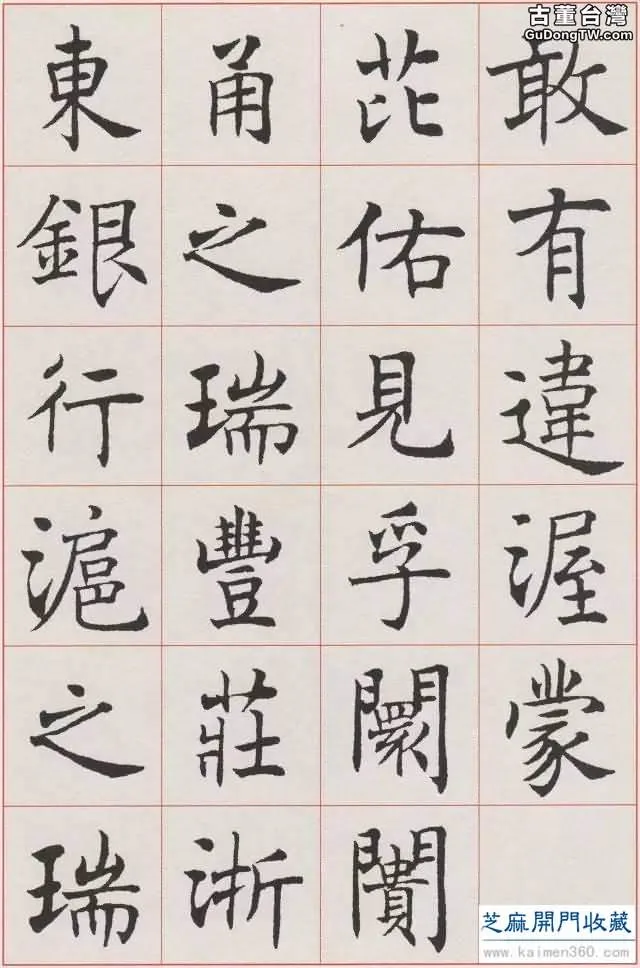 古董台灣
GuDongTW.com
敢有違渥蒙
芘佑見孚闤闠
甬之瑞豐莊浙
東銀行滬之瑞
芝麻開門收藏
www.kaimen360.com